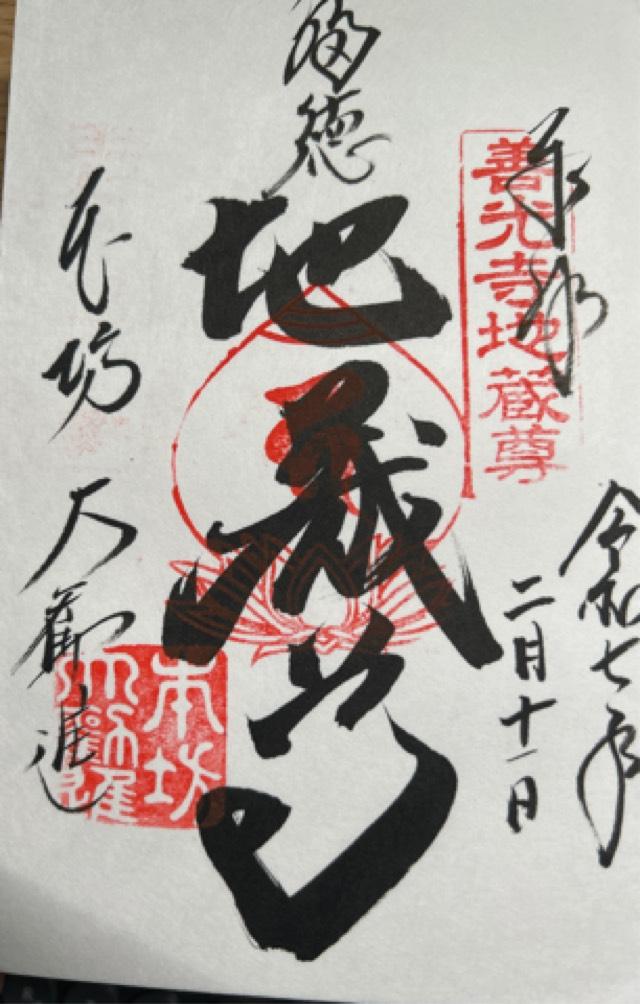 奉拝
善光寺地蔵尊
令和七年
二月十一日
福徳
地蔵尊
本坊 大勧進
本坊
大勧進